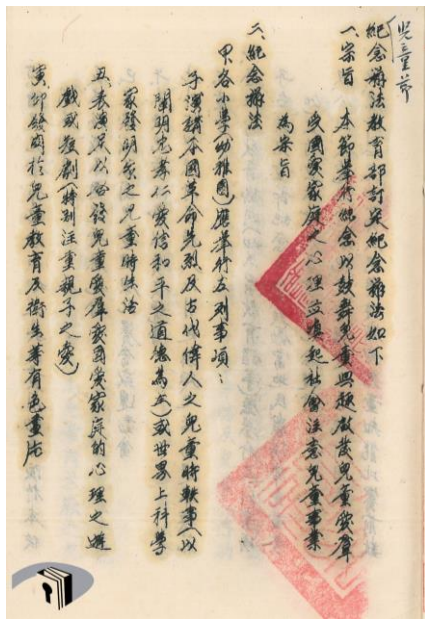 兒童節
紀念辦法教育部訂定紀念辦法如下
一、宗旨 本節舉行紀念以鼓舞兒童興趣啟發兒童愛群
愛國愛家庭之心理並喚起社會注意兒童事業
為宗旨
二、紀念辦法
甲、各小學(幼雅園)應舉行左列事項：
子、演講本國革命先烈及古代偉人之兒童時軼事(以
闡明忠孝仁愛信和平之道德為主)或世界上科學
家發明家之兒童時生活
丑、表演足以啟發兒童愛群愛國愛家庭的心理之遊
戲或短劇(特別注重親子之愛)
寅、仰發關於兒童教育及衛生等有色畫片